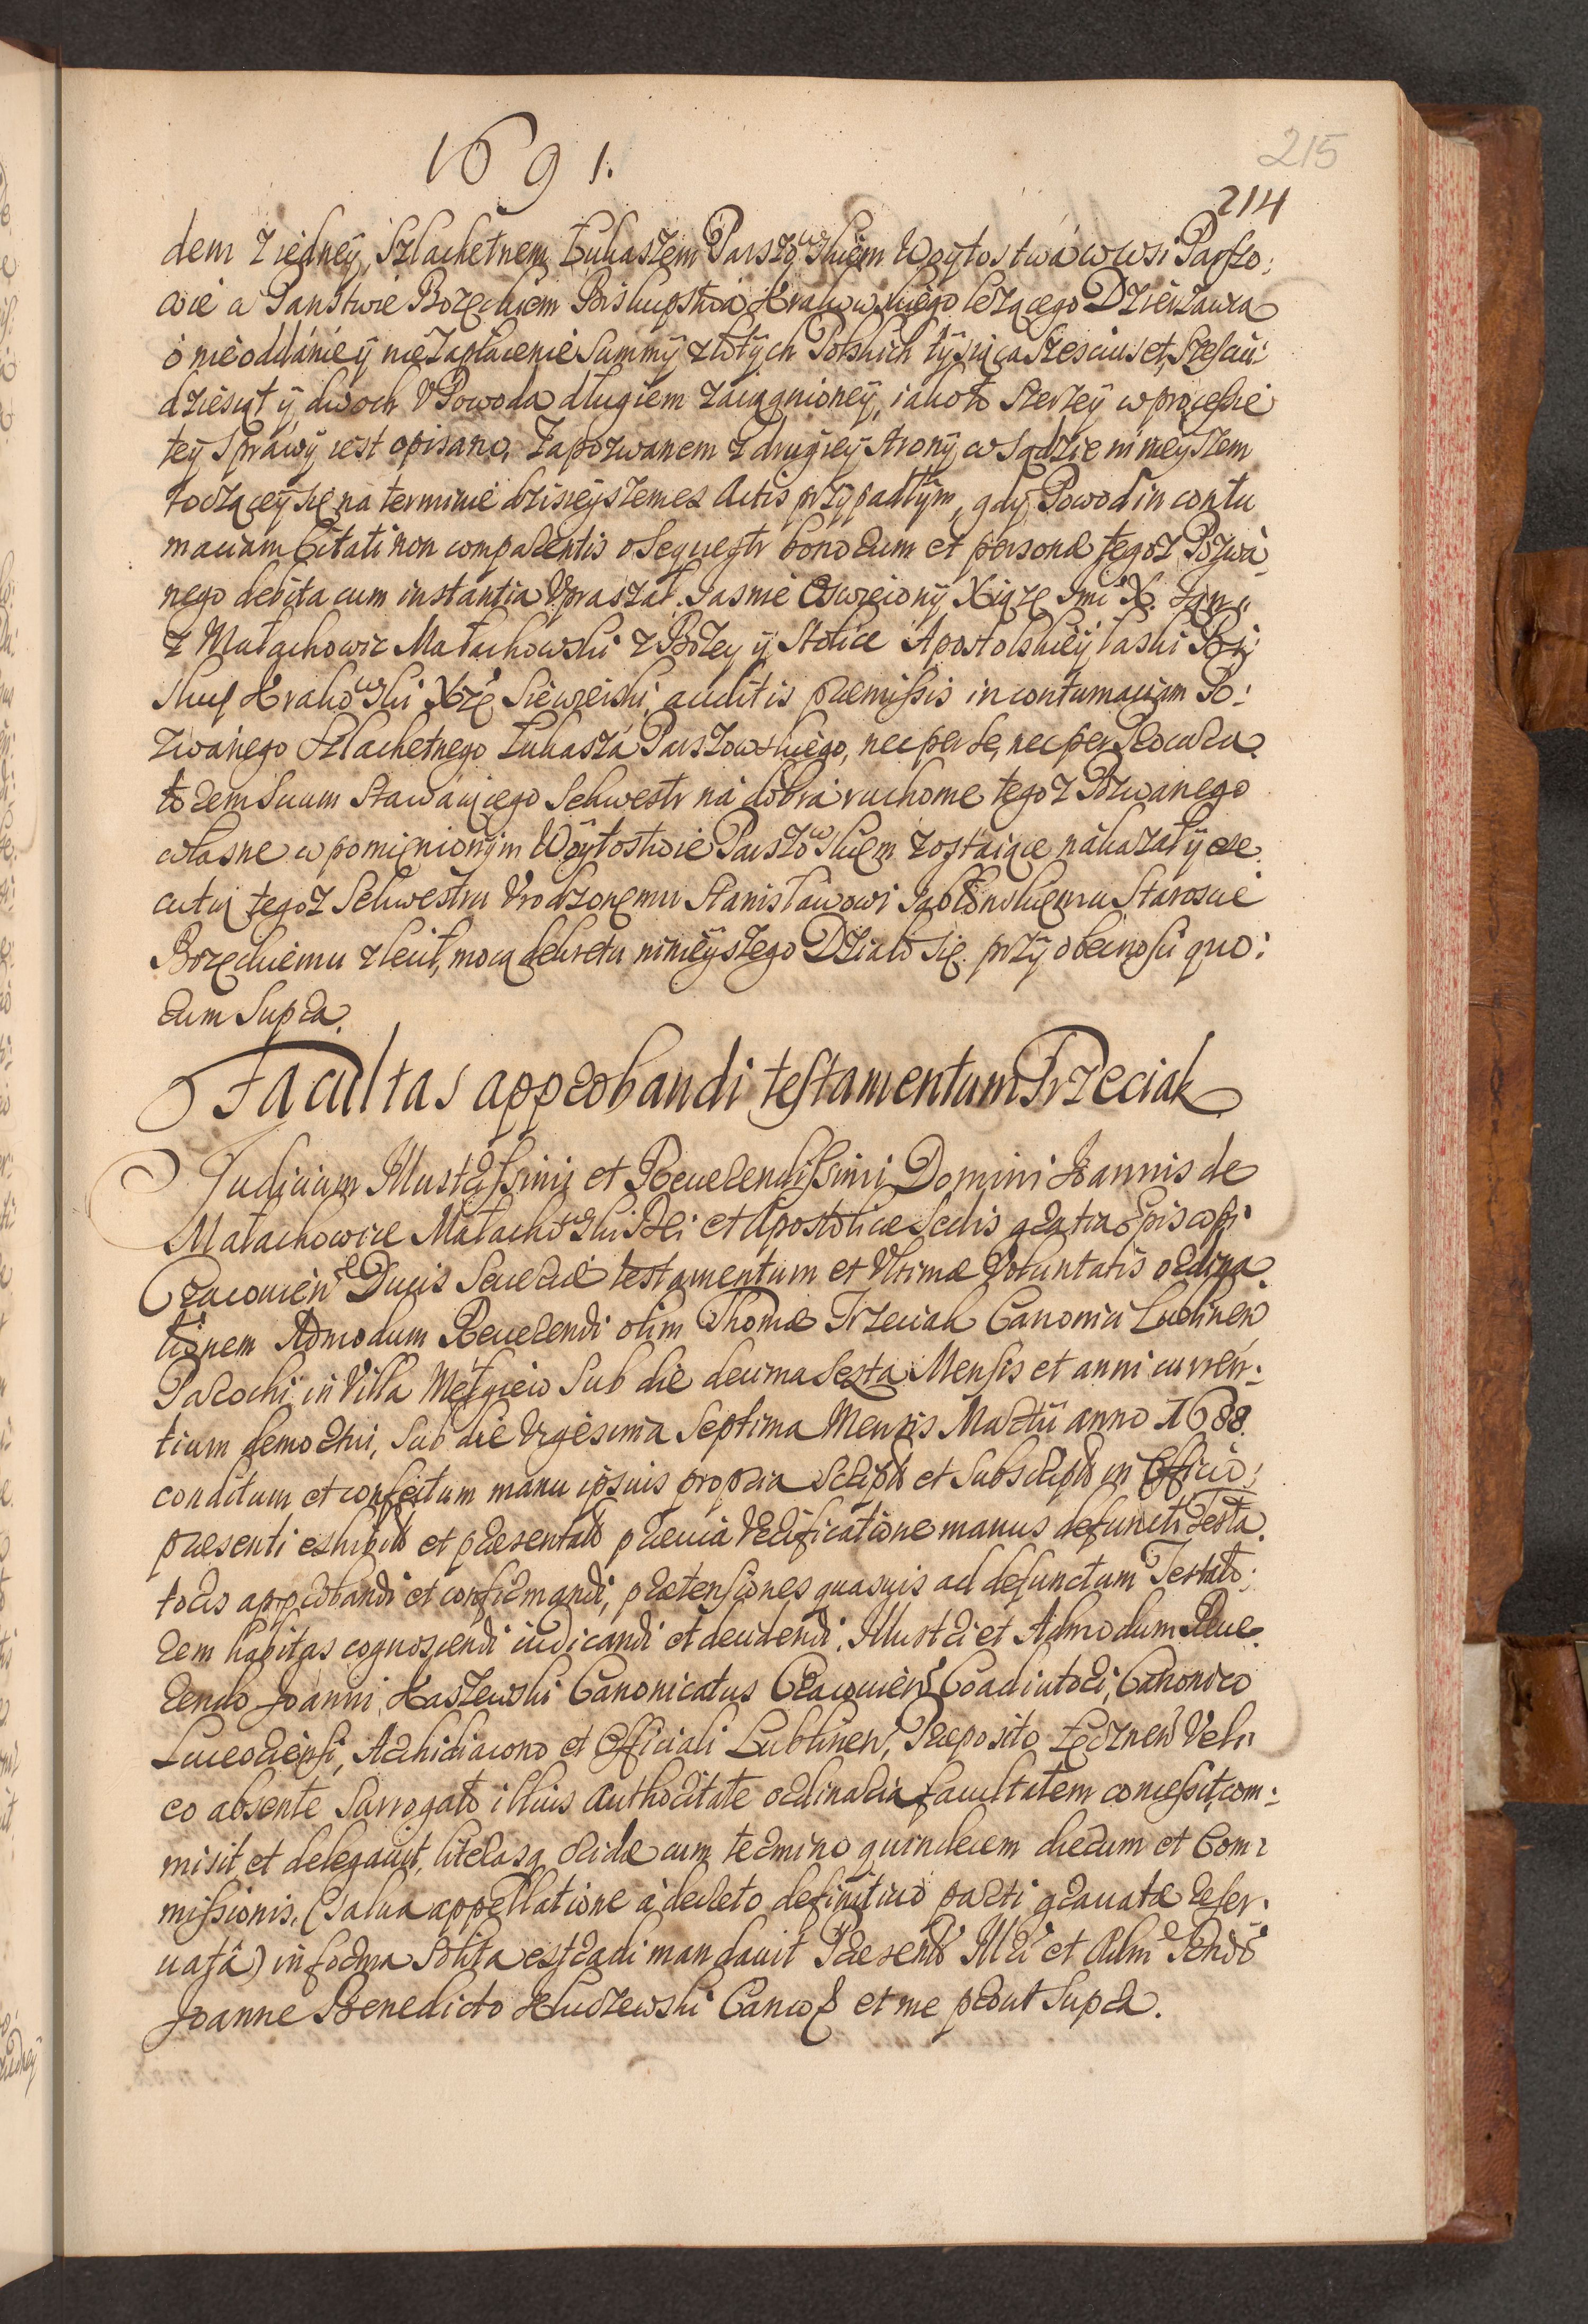 1691.
215
214
dem z iedney, Szlachetnem Łukaszem Parszowskiem Woytostwa w wsi Parszo:
wie a Panstwie Bozęckiem Biskupstwa Krakowskiego leżącego Dzierżawcą
o nieoddánie ÿ nie zapłacenie Summÿ złotÿch Polskich tÿsiąca szesciuset, szesciu:
dziesiąt ÿ dwoch V Powoda długiem zaciągnioneÿ, iako to szerzeÿ w processie
teÿ sprawÿ iest opisano, zapozwanem z drugieÿ stronÿ w Sądzie ninieÿszem
toczączeÿ się na terminie dzisieÿszem ex Actis przÿpadłÿm, gdÿ Powod in contu
maciam Citati non comparentis o sequestr bonorum et persona tegoż Pozwa
nego debita cum instantia Vpraszał. Jasnie Oswiecionÿ Xiąże Jmć X. Jan
z Małachowic Małachowski z Bożey ÿ Stolice Apostolskieÿ łaski Bi:
skup Krakowski Xże Siewierski, auditis praemissis in contumaciam Po:
zwanego Szlachetnego Łukasza Parszowskiego, nec per se, nec per Procura
torem suum stawaiącego Sekwestr na dobra ruchome tegoż Pozwanego
własne w pomienionÿm Woÿtostwie Parszowskiem zostaiące nakazał ÿ exe
cutią tegoż Sekwestru Vrodzonemu Stanisławowi Jabłonskiemu Staroscie
Bozęckiemu zlecił, mocą dekretu ninieÿszego Działo się przÿ obecnosci quo:
rum supra.
Facultas approbandi testamentum Trzeciak
Judicium Illustrissimi et Reuerendissimi Domini Joannis de
Małachowice Małachowski Dei et Apostolicae Sedis gratia Episcopi
Cracouien Ducis Seueriae testamentum et Vltimae Voluntatis ordina
tionem Admodum Reuerendi olim Thomae Trzeciak Canonici Lublinen
Parochi in Villa Mełgiew sub die decima sexta Mensis et anni curren:
tium demortui, sub die Vigesima Septima Mensis Martii anno 1688.
conditum et confectum manu ipsius propria script et subscript in Officio
praesenti exhibit et praesentat praeuia Verificatione manus defuncti Testa
toris approbandi et confirmandi, praetensiones quasuis ad defunctum Testato:
rem habitas cognoscendi iudicandi et decidendi, Illustri et Admodum Reue
rendo Joanni Kaszewski Canonicatus Cracouien Coadiutori, Canonico
Luceoriensi, Archidiacono et Officiali Lublinen, Praeposito Łęcznen Vel
eo absente Surrogato illius Authoritate ordinaria facultatem concessit, com:
misit et delegauit, literasq desuper cum termino quindecem dierum et Com:
missionis. (salua appellatione a decreto definitiuo parti grauatae reser:
uata) in forma solita extradi mandauit Praesent Illri et Adm Rndo
Joanne Benedicto Kluczewski Canco et me prout supra.